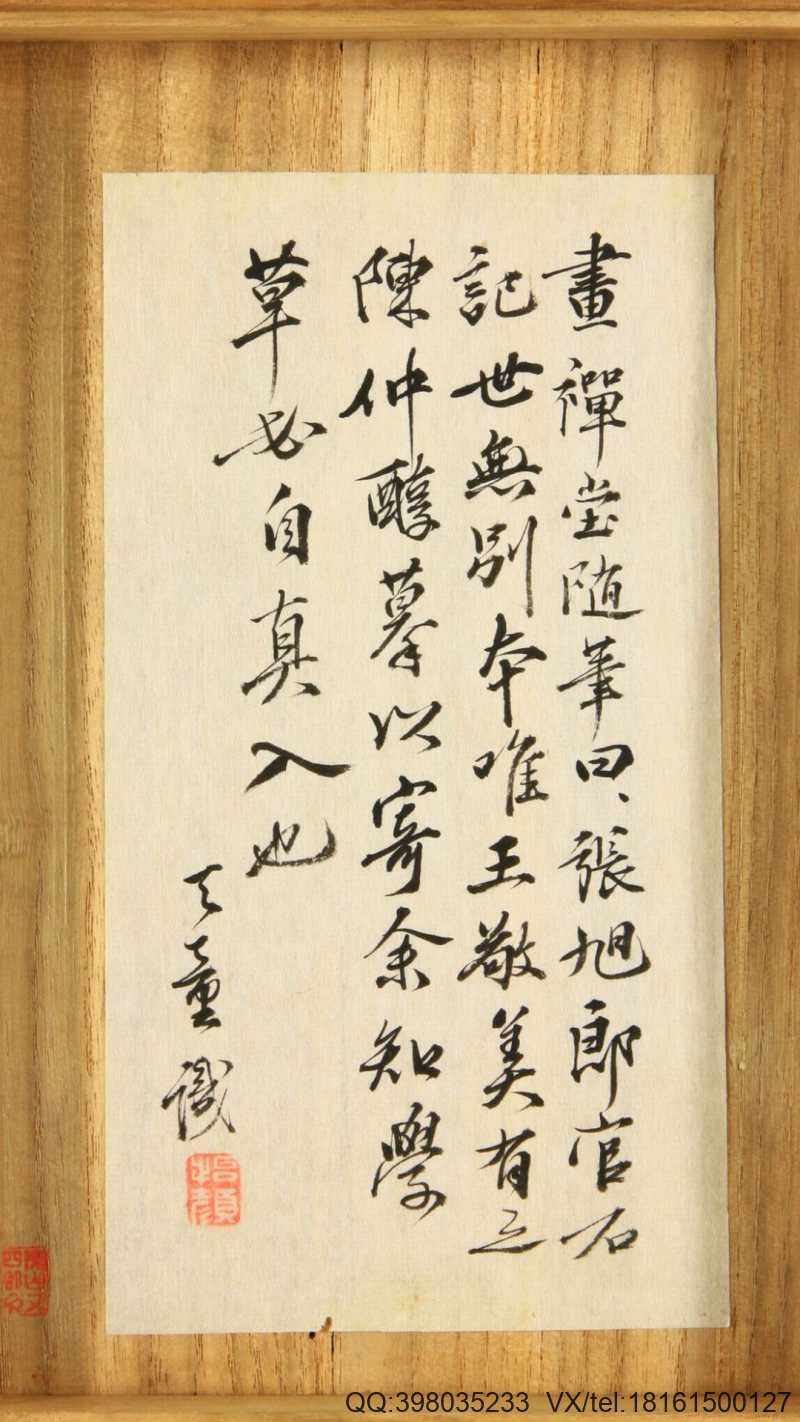 畫禪堂随筆曰、張旭郎官石
記世無別本唯王敬美有之
陳仲醇摹以寄余知學
草必自真入也
天童識
QQ:398035233 VX/tel:18161500127